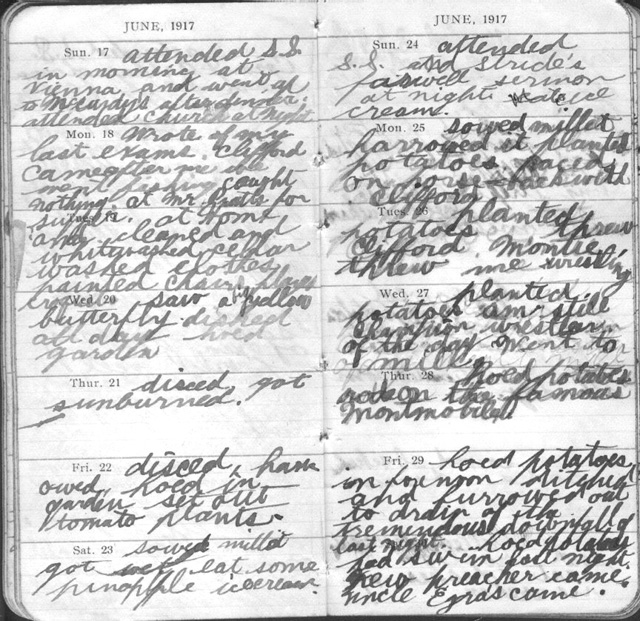 JUNE, 1917
Sun. 17 attended S.S.
in morning at
Vienna and went
to after dinner.
attended church at night
Mon. 18 Wrote of my
last exams. Clifford
came after me
went fishing caught
nothing. at Mr. for
supper.
Tues. 19 at home
cleaned and
cellar
washed clothes
painted chair
Wed. 20 saw a yellow
butterfly disced
all day hoed
garden
Thur. 21 disced. got
sunburned.
Fri. 22 disced, harr
owed, hoed in
garden set out
tomato plants.
Sat. 23 sowed millet
got eat some
pinapple icecream.
JUNE, 1917
Sun. 24 attended
S.S. and Stride's
farwell sermon
at night ate ice
cream.
Mon. 25 sowed millet
harrowed it planted
potatoes races
on horse-back with
Clifford
Tues. 26 planted
potatoes threw
Clifford Montie,
threw me
Wed. 27 planted
potatoes am still
champion wrestler
of the day went to
Thur. 28 hoed potatoes
rode on the famous
Montmobile
Fri. 29 hoed potatoes
in forenoon ditched
and furrowed out
to drain of the
tremendous downfall of
last night. hoed potatoes
had swim fall night.
new preacher came.
uncle Ezras came.